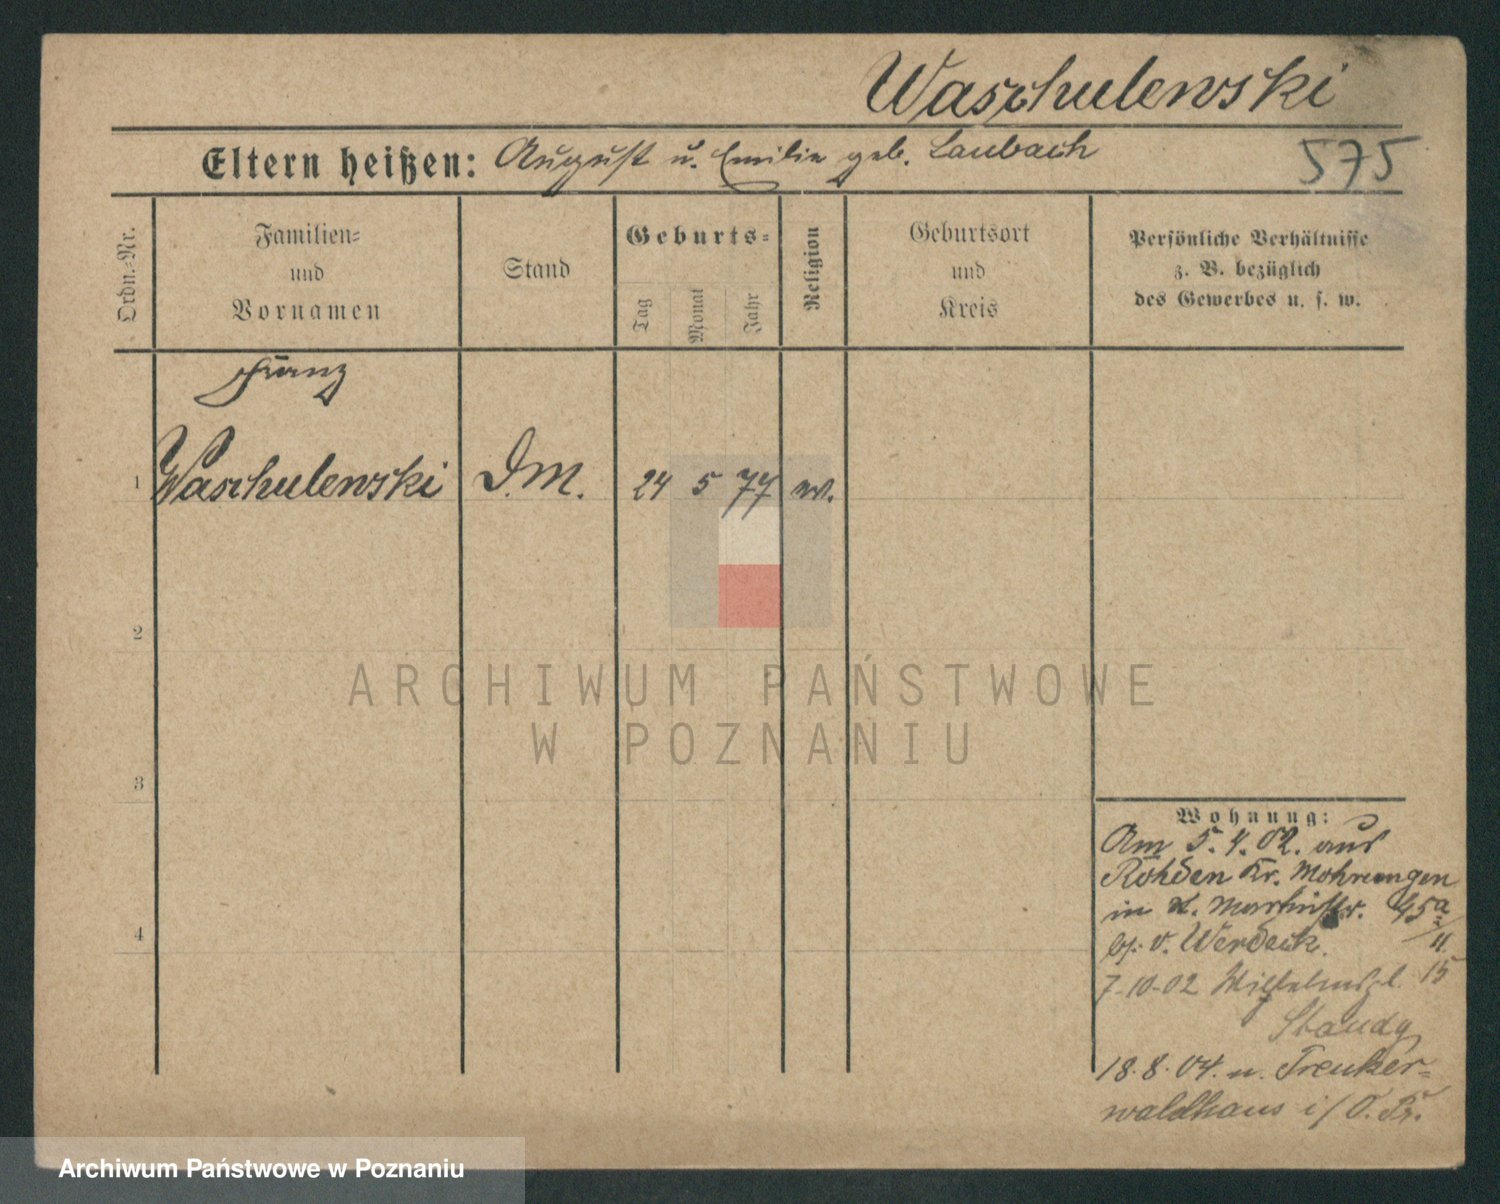 Waschulewski
Eltern heißen: August u. Emilie geb. Laubach
575
Ordn.-Nr.
Familien-
und
Vornamen
Stand
Geburts-
Tag
Monat
Jahr
Religion
Geburtsort
und
Kreis
Persönliche Verhältnisse
z. B. bezüglich
des Gewerbes u. s. w.
Franz
1 Waschulewski D.M. 24 5 77 ev.
2
3
4
Wohnung:
Am 5.4.02. aus
Röhden Kr. Mohrungen
in St. Martinstr. 45a
II
bei v. Werdeck.
7-10-02 Wilhelmspl. 15
Staudy
18.8.04. n.
waldhaus i/O.Pr.
ARCHIWUM PAŃSTWOWE
W POZNANIU
Archiwum Państwowe w Poznaniu